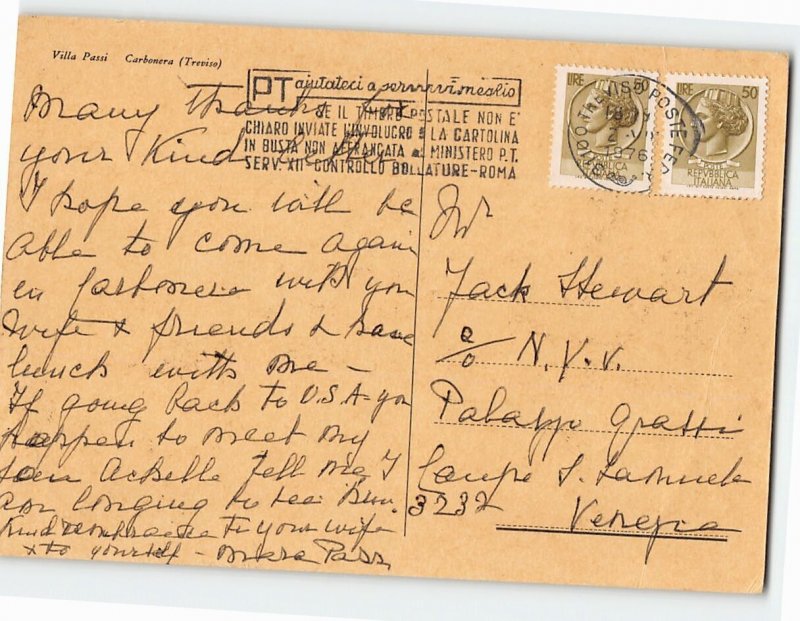 Villa Passi Carbonera (Treviso)
PT aiutateci a servirvi meglio
SE IL TIMBRO POSTALE NON E'
CHIARO INVIATE L'INVOLUCRO O LA CARTOLINA
IN BUSTA NON AFFRANCATA al MINISTERO P.T.
SERV. XII - CONTROLLO BOLLATURE - ROMA
LIRE 50
LIRE 50
REPVBBLICA
ITALIANA
REPVBBLICA
ITALIANA
1976
Many thanks for
your Kind
I hope you will be
able to come again
in Carbonera with you
wife & friends & have
lunch with me –
If going back to U.S.A. you
happen to meet my
son Achille tell me I
am longing to see him.
Kind remembrance to your wife
& to yourself –
Mr
Jack Stewart
c/o N.Y.V.
Palazzo Grassi
Campo S. Samuele
3232
Venezia